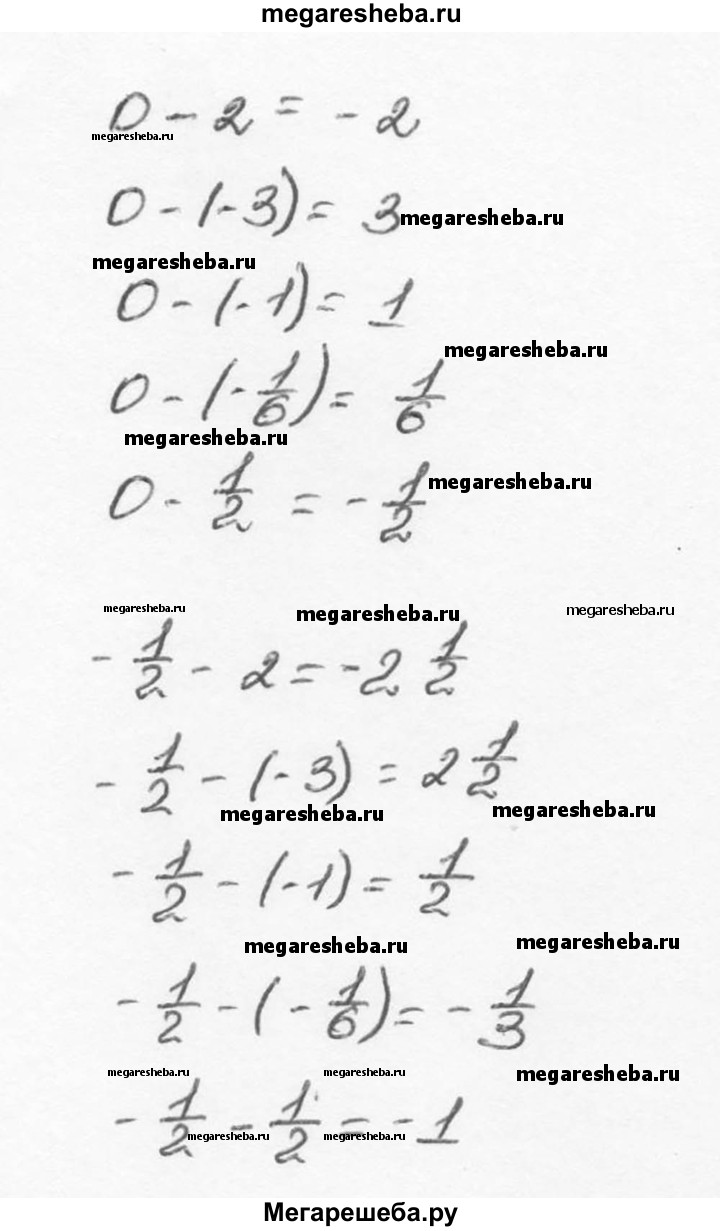 megaresheba.ru
0 - 2 = - 2
megaresheba.ru
0 - (- 3) = 3 megaresheba.ru
megaresheba.ru
0 - (- 1) = 1
megaresheba.ru
0 - (- 1/6) = 1/6
megaresheba.ru
0 - 1/2 = - 1/2 megaresheba.ru
megaresheba.ru megaresheba.ru megaresheba.ru
- 1/2 - 2 = - 2 1/2
- 1/2 - (- 3) = 2 1/2
megaresheba.ru megaresheba.ru
- 1/2 - (- 1) = 1/2
megaresheba.ru megaresheba.ru
- 1/2 - (- 1/6) = - 1/3
megaresheba.ru megaresheba.ru megaresheba.ru
- 1/2 - 1/2 = - 1
megaresheba.ru megaresheba.ru
Мегарешеба.ру